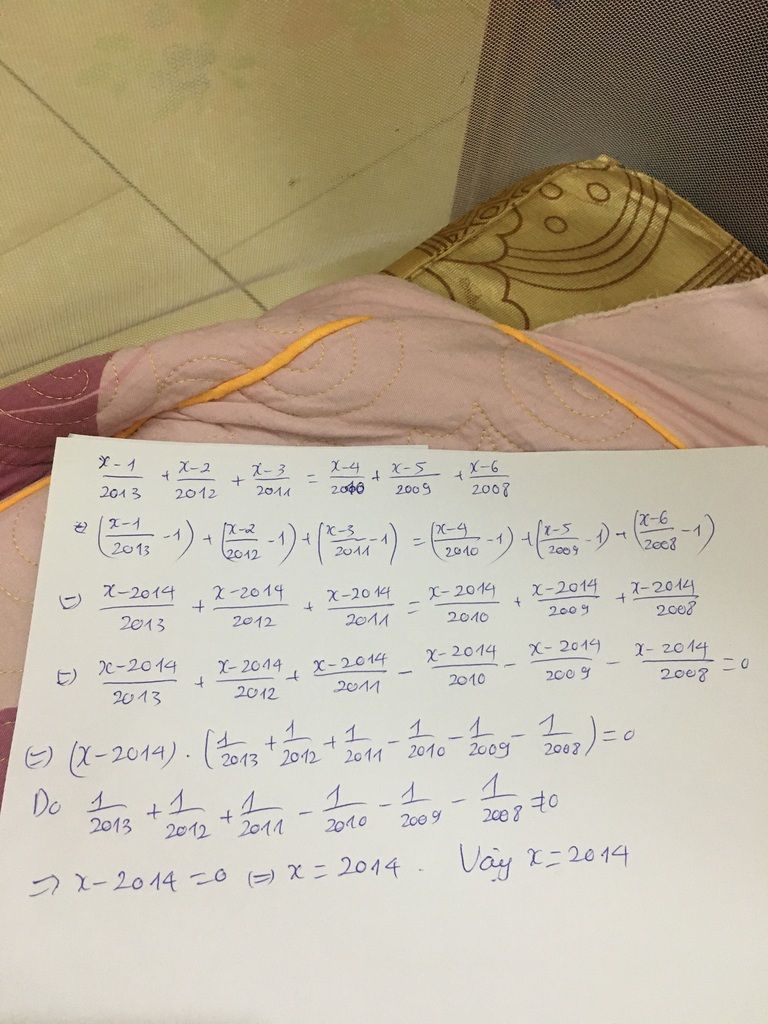 x-1/2013 + x-2/2012 + x-3/2011 = x-4/2010 + x-5/2009 + x-6/2008
⇔ (x-1/2013 - 1) + (x-2/2012 - 1) + (x-3/2011 - 1) = (x-4/2010 - 1) + (x-5/2009 - 1) + (x-6/2008 - 1)
⇔ x-2014/2013 + x-2014/2012 + x-2014/2011 = x-2014/2010 + x-2014/2009 + x-2014/2008
⇔ x-2014/2013 + x-2014/2012 + x-2014/2011 - x-2014/2010 - x-2014/2009 - x-2014/2008 = 0
⇔ (x-2014) . (1/2013 + 1/2012 + 1/2011 - 1/2010 - 1/2009 - 1/2008) = 0
Do 1/2013 + 1/2012 + 1/2011 - 1/2010 - 1/2009 - 1/2008 ≠ 0
⇒ x-2014 = 0 ⇔ x = 2014. Vậy x = 2014